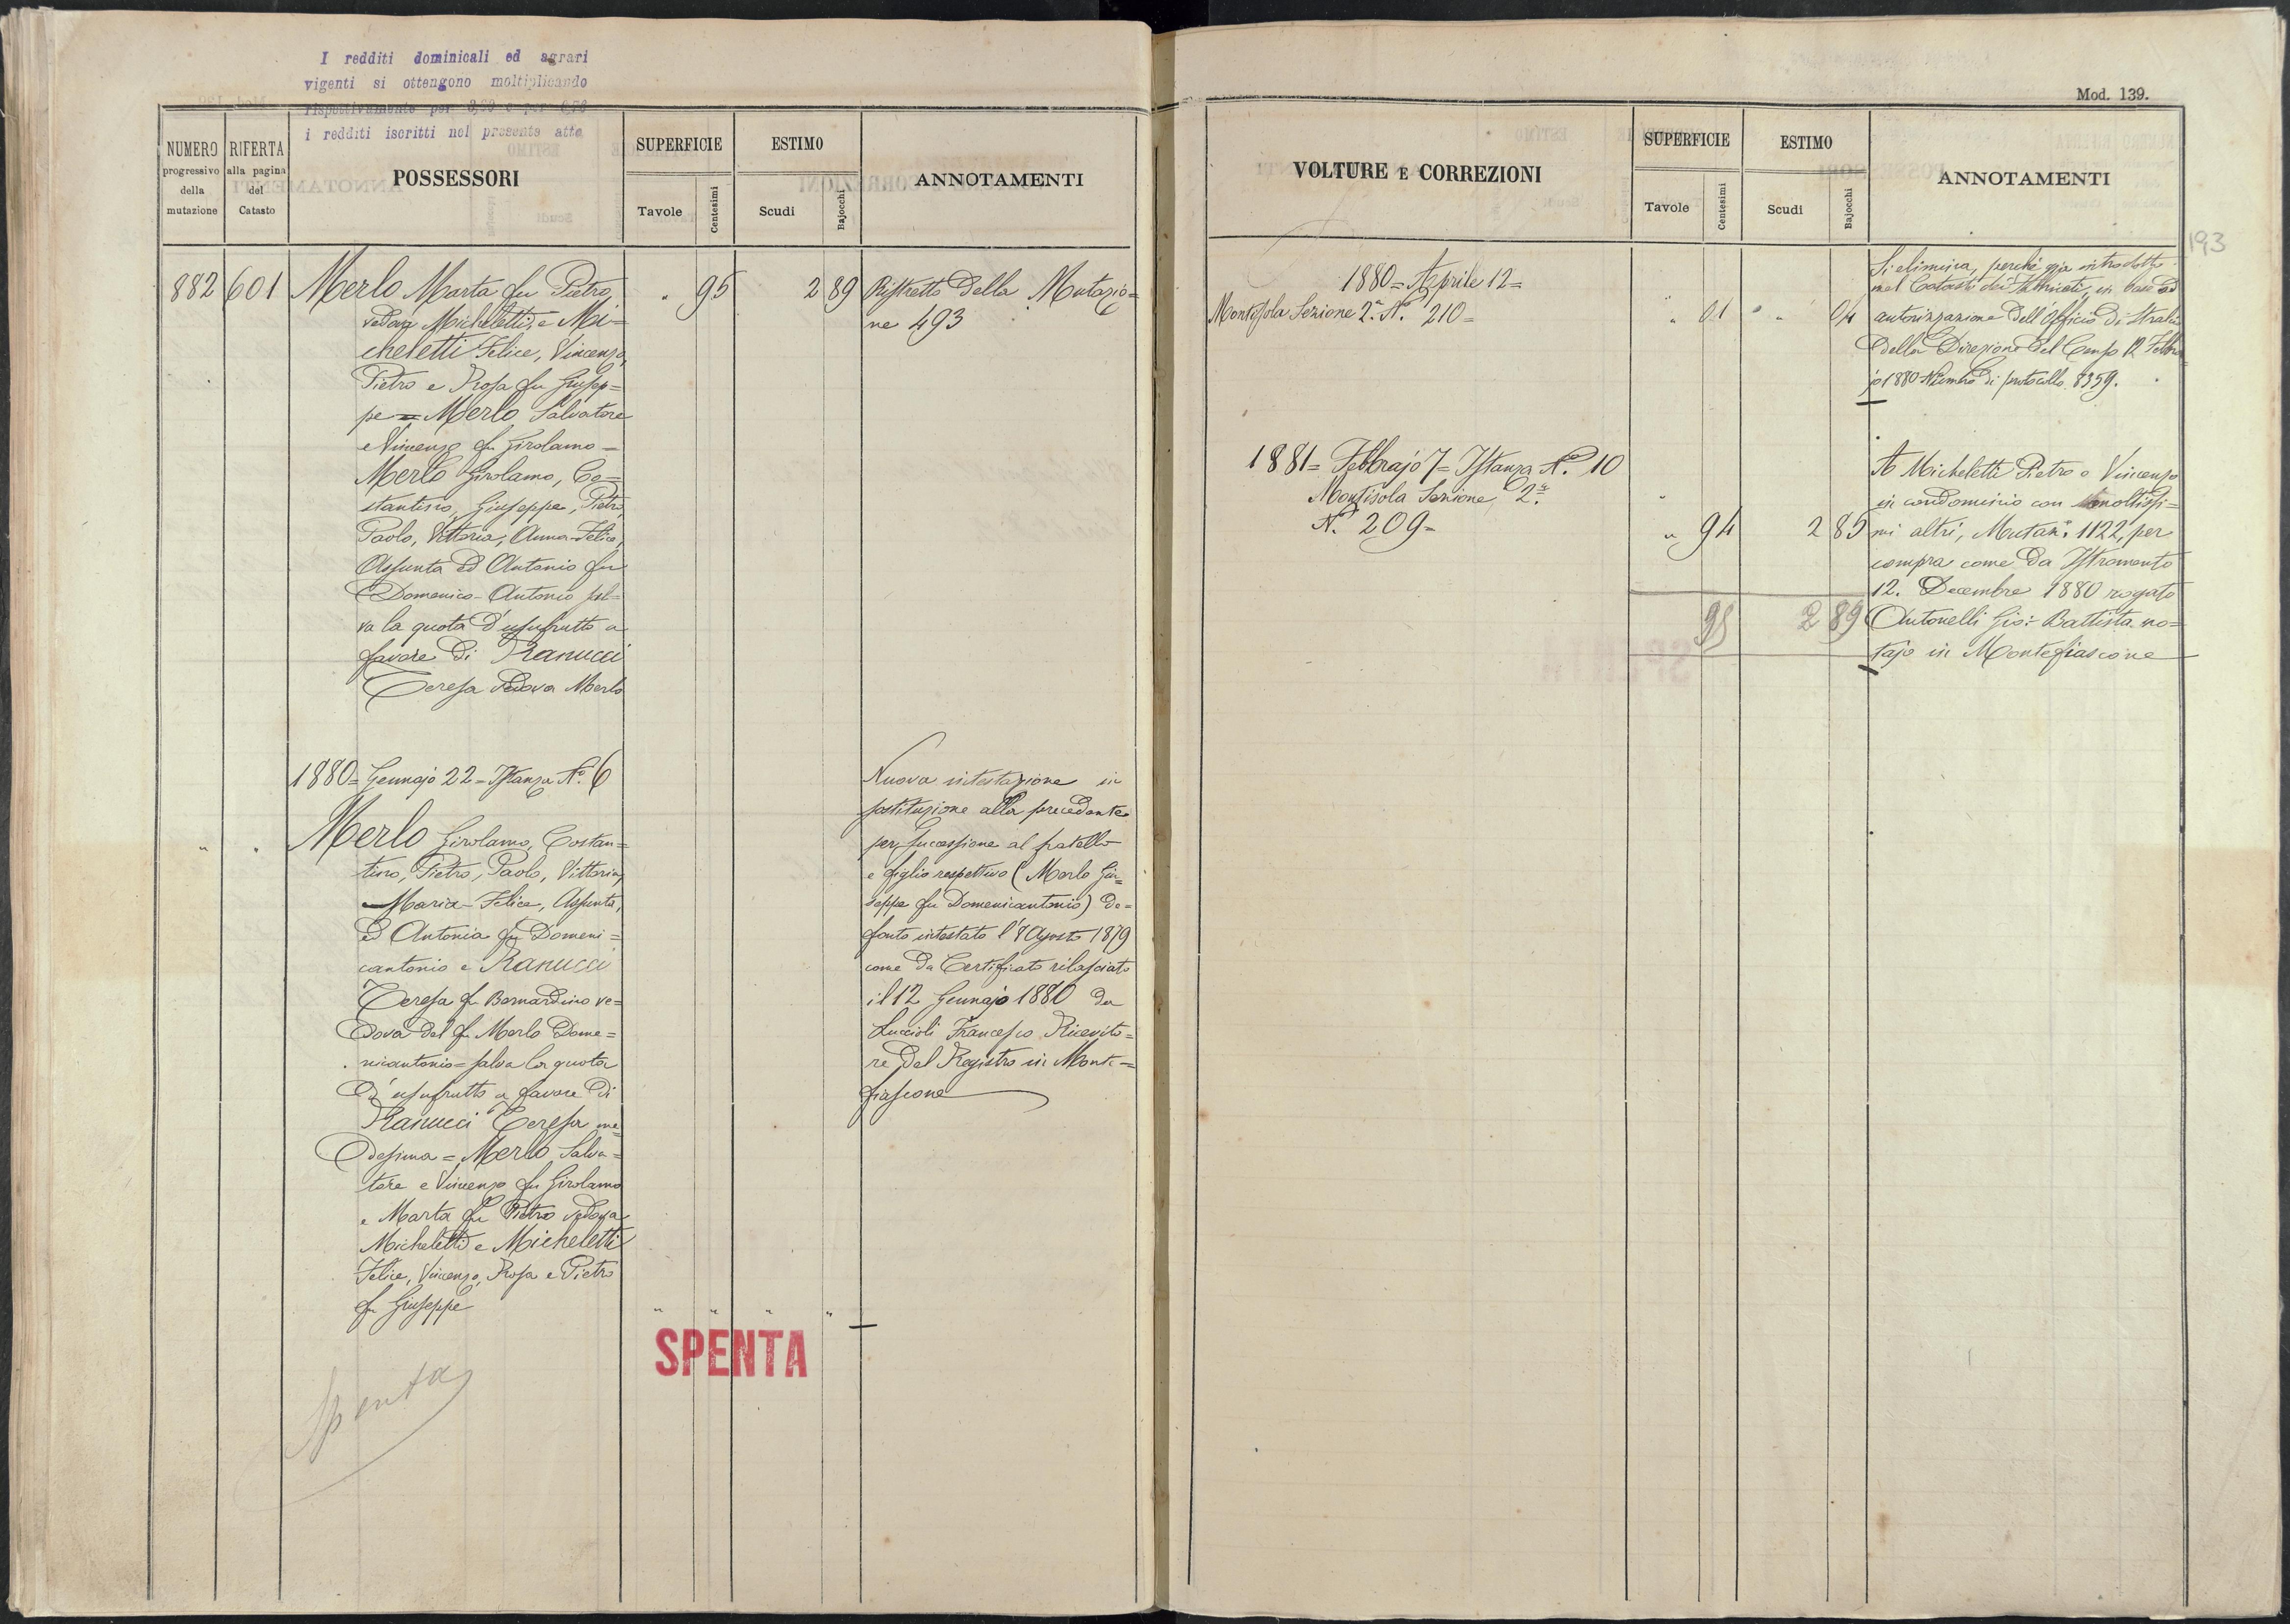 I redditi dominicali ed agrari
vigenti si ottengono moltiplicando
rispettivamente per
i redditi iscritti nel presente atto
NUMERO progressivo della mutazione
RIFERTA alla pagina del Catasto
POSSESSORI
SUPERFICIE
Tavole
Centesimi
ESTIMO
Scudi
Bajocchi
ANNOTAMENTI
882 601 Merlo Marta fu Pietro " 95 2 89 Ristretto della Mutazio=
vedova Micheletti, e Mi= ne 493
cheletti Felice, Vincenzo,
Pietro e Rosa fu Giusep=
pe = Merlo Salvatore
e Vincenzo fu Girolamo =
Merlo Girolamo, Co=
stantino, Giuseppe, Pietro,
Paolo, Vittoria, Anna-Felice,
Assunta ed Antonio fu
Domenico-Antonio sal=
va la quota d'usufrutto a
favore di Ranucci
Teresa vedova Merlo
1880 = Gennajo 22 = Istanza N.º 6
Nuova intestazione in
sostituzione alla precedente
per successione al fratello
e figlio respettivo (Merlo Giu=
seppe fu Domenicantonio) de=
fonto intestato l'8 Agosto 1879
come da Certificato rilasciato
il 12 Gennajo 1880 da
Luccioli Francesco Ricevito=
re del Registro in Monte=
fiascone
" " Merlo Girolamo, Costan=
tino, Pietro, Paolo, Vittoria,
Maria-Felice, Assunta,
ed Antonia fu Domeni=
cantonio e Ranucci
Teresa fu Bernardino ve=
dova del fu Merlo Dome=
nicantonio = salva la quota
d'usufrutto a favore di
Ranucci Teresa me=
desima = Merlo Salva=
tore e Vincenzo fu Girolamo
e Marta fu Pietro vedova
Micheletti e Micheletti
Felice, Vincenzo, Rosa e Pietro
fu Giuseppe " " " "
SPENTA
Spenta
Mod. 139.
VOLTURE E CORREZIONI
SUPERFICIE
Tavole
Centesimi
ESTIMO
Scudi
Bajocchi
ANNOTAMENTI
193
1880 = Aprile 12 =
Montisola Sezione 2ª N.º 210 = " 01 " 04
Si elimina, perchè già introdotto
nel Catasto dei Fabbricati, in base ad
autorizzazione dell'Officio di Stralcio
della Direzione del Censo 12 Febbra
jo 1880 Numero di protocollo 8359.
1881 = Febbrajo 7 = Istanza N.º 10
Montisola Sezione 2ª
N.º 209 = " 94 2 85
A Micheletti Pietro e Vincenzo
in condominio con moltissi=
mi altri, Mutaz.e 1122, per
compra come da Istromento
12. Decembre 1880 rogato
Antonelli Gio: Battista no=
tajo in Montefiascone
95 2 89